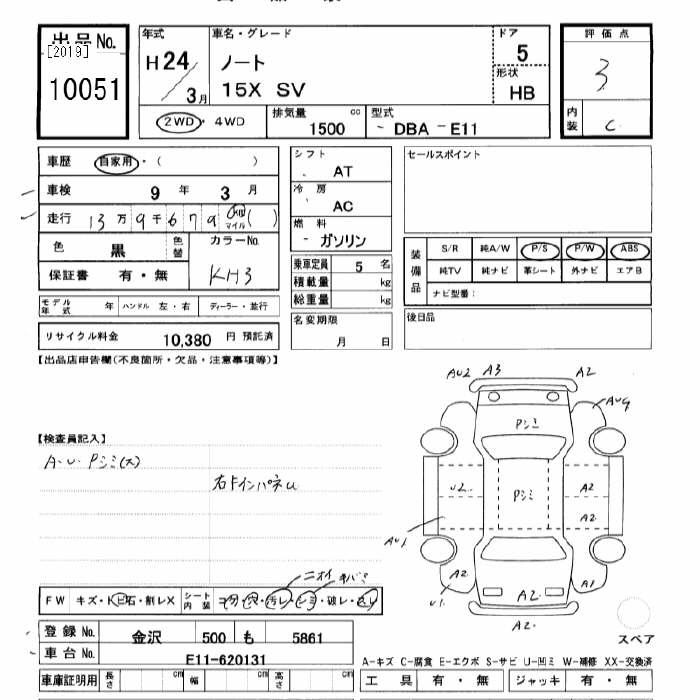 出品 No.
[2019]
10051
年式
H24/3月
車名・グレード
ノート
15X SV
ドア
5
形状
HB
評価点
3
内装
C
2WD・4WD
排気量 cc
1500
型式
- DBA - E11
車歴 自家用・( )
車検 9年 3月
走行 13万9千679 km マイル( )
色 黒 色替
カラーNo.
KH3
保証書 有・無
モデル年式 年 ハンドル 左・右 ディーラー・並行
リサイクル料金 10,380 円 預託済
シフト
AT
冷房
AC
燃料
- ガソリン
乗車定員 5 名
積載量 kg
総重量 kg
名変期限
月 日
セールスポイント
装備品
S/R 純A/W P/S P/W ABS
純TV 純ナビ 革シート 外ナビ エアB
ナビ型番：
後日品
【出品店申告欄(不良箇所・欠品・注意事項等)】
【検査員記入】
A・U・Pシミ(大)
右下インパネU
AU2 A3 A2
AU9
Pシミ
U2 Pシミ A2
A2
AU1
A2 A1
U1 A2
A2
スペア
ニオイ
FW キズ・トビ石・割レX
シート内装 コゲ・穴・汚レ・シミ・破レ
登録 No. 金沢 500 も 5861
車台 No. E11-620131
車庫証明用 長さ cm 幅 cm 高さ cm
A-キズ C-腐食 E-エクボ S-サビ U-凹ミ W-補修 XX-交換済
工具 有・無 ジャッキ 有・無